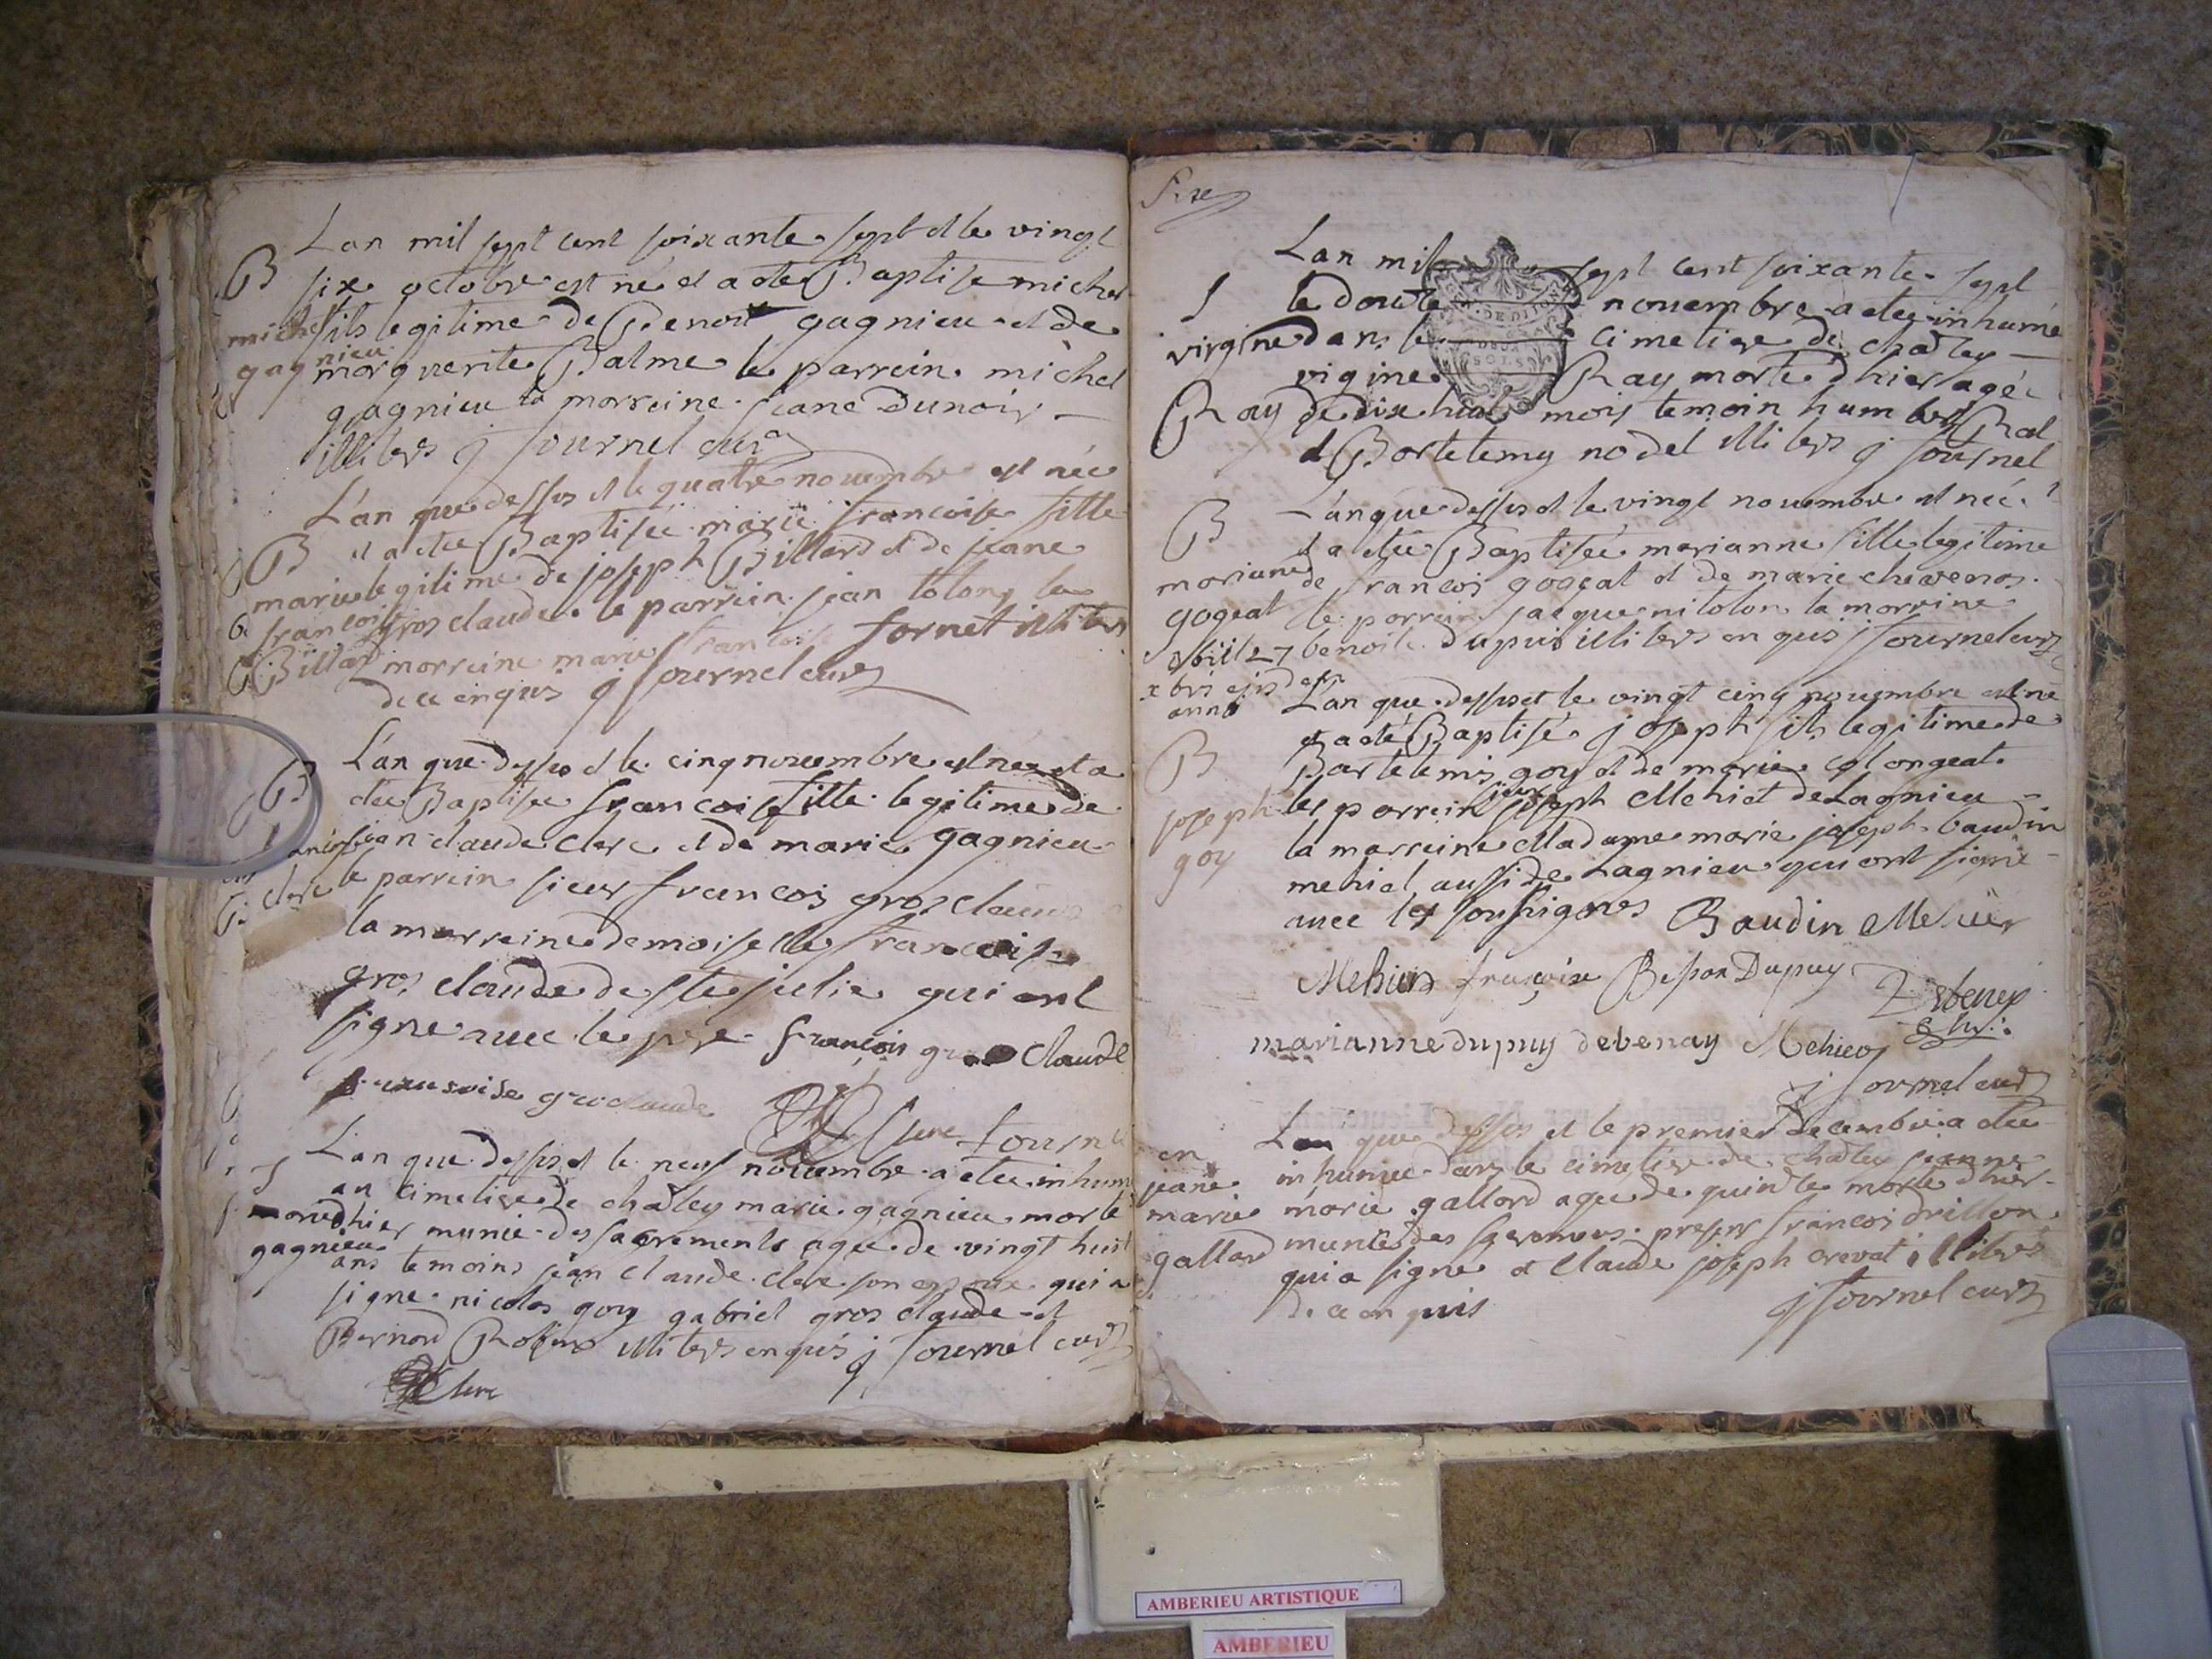 Lan mil sept cent soixante sept et le vingt
B six octobre est né et a ete Baptise michel
michel fils legitime de Benoit gagnieu et de
gagnieu marguerite Balme le parrein michel
gagnieu la marreine jeane Dunoir
illiters j fournel curé
L'an que dessus et le quatre novembre est née
B et a etee Baptisée marie francoise fille
marie legitime de joseph Billard et de jeane
francoise gros claude le parrein jean tolong la
Billard morreine marie francoise fornet illiters
de ce enquis j fournel curé
L'an que dessus et le cinq novembre est née et a
B etee Baptisee francoise fille legitime de
jean claude clerc et de marie gagnieu
clerc le parrein sieur francois gros claude
la marreine demoiselle francoise
gros claude de ste julie qui ont
signe avec le pere francois gros claude
fransoise groclaude
Clerc fournel
L'an que dessus et le neuf novembre a etee inhumé
S au cimetiere de chaley marie gagnieu morte
marie dhier munie des sacrements agee de vingt huit
gagnieu ans temoins jean claude clerc son epoux qui a
signe nicolas goy gabriel gros claude et
Bernard Robin illiters enquis j fournel curé
Clerc
Size
Lan mil sept cent soixante sept
S le douze novembre a etee inhumé
virgine dans le cimetiere de chaley
vigine Ray morte d'hier agée
Ray de dix huit mois temoin humbert Rat
et Bartelemy nodet illiters j fournel
L'an que dessus et le vingt novembre est née
B et a etée Baptisée marianne fille legitime
mariane de francois gogeat et de marie chevenos
gogeat le porrein jacque nitolon la morrine
obiit 27 benoite dupuis illiters enquis j fournel curé
xbris ejusdem
anno L'an que dessus et le vingt cinq novembre est né
et a eté Baptisé joseph fils legitime de
B Bartelemis goy et de marie colongeat
joseph les parrein sieur joseph Mehiet de Lagnieu
goy la marreine Madame marie joseph baudin
mehiet aussi de Lagnieu qui ont signé
avec les soussignes Baudin Mehier
Mehier françoise Besson Dupuy Debeney
marianne dupuy debenay Mehier
j fournel curé
Lan que dessus et le premier decembre a etee
jeane inhumee dans le cimetiere de chaley jeanne
marie marie gallard agee de quinze morte dhier
gallard munie des sacremens presens francois drillon
qui a signe et Claude joseph crevat illiters
de ce enquis j fournel curé
AMBERIEU ARTISTIQUE
AMBERIEU